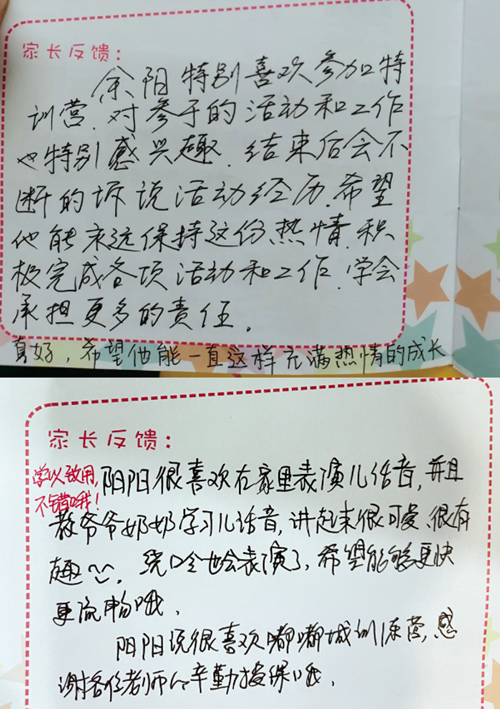 家长反馈：
余阳特别喜欢参加特
训营.对参于的活动和工作
也特别感兴趣.结束后会不
断的诉说活动经历.希望
他能永远保持这份热情.积
极完成各项活动和工作.学会
承担更多的责任。
真好，希望他能一直这样充满热情的成长
家长反馈：
学以致用，
不错哦！
阳阳很喜欢在家里表演儿话音，并且
教爷爷奶奶学习儿话音，讲起来很可爱、很有
趣~.绕口令也会表演了，希望能够更快
更流畅哦.
阳阳说很喜欢嘟嘟城训练营，感
谢各位老师的辛勤授课哦.